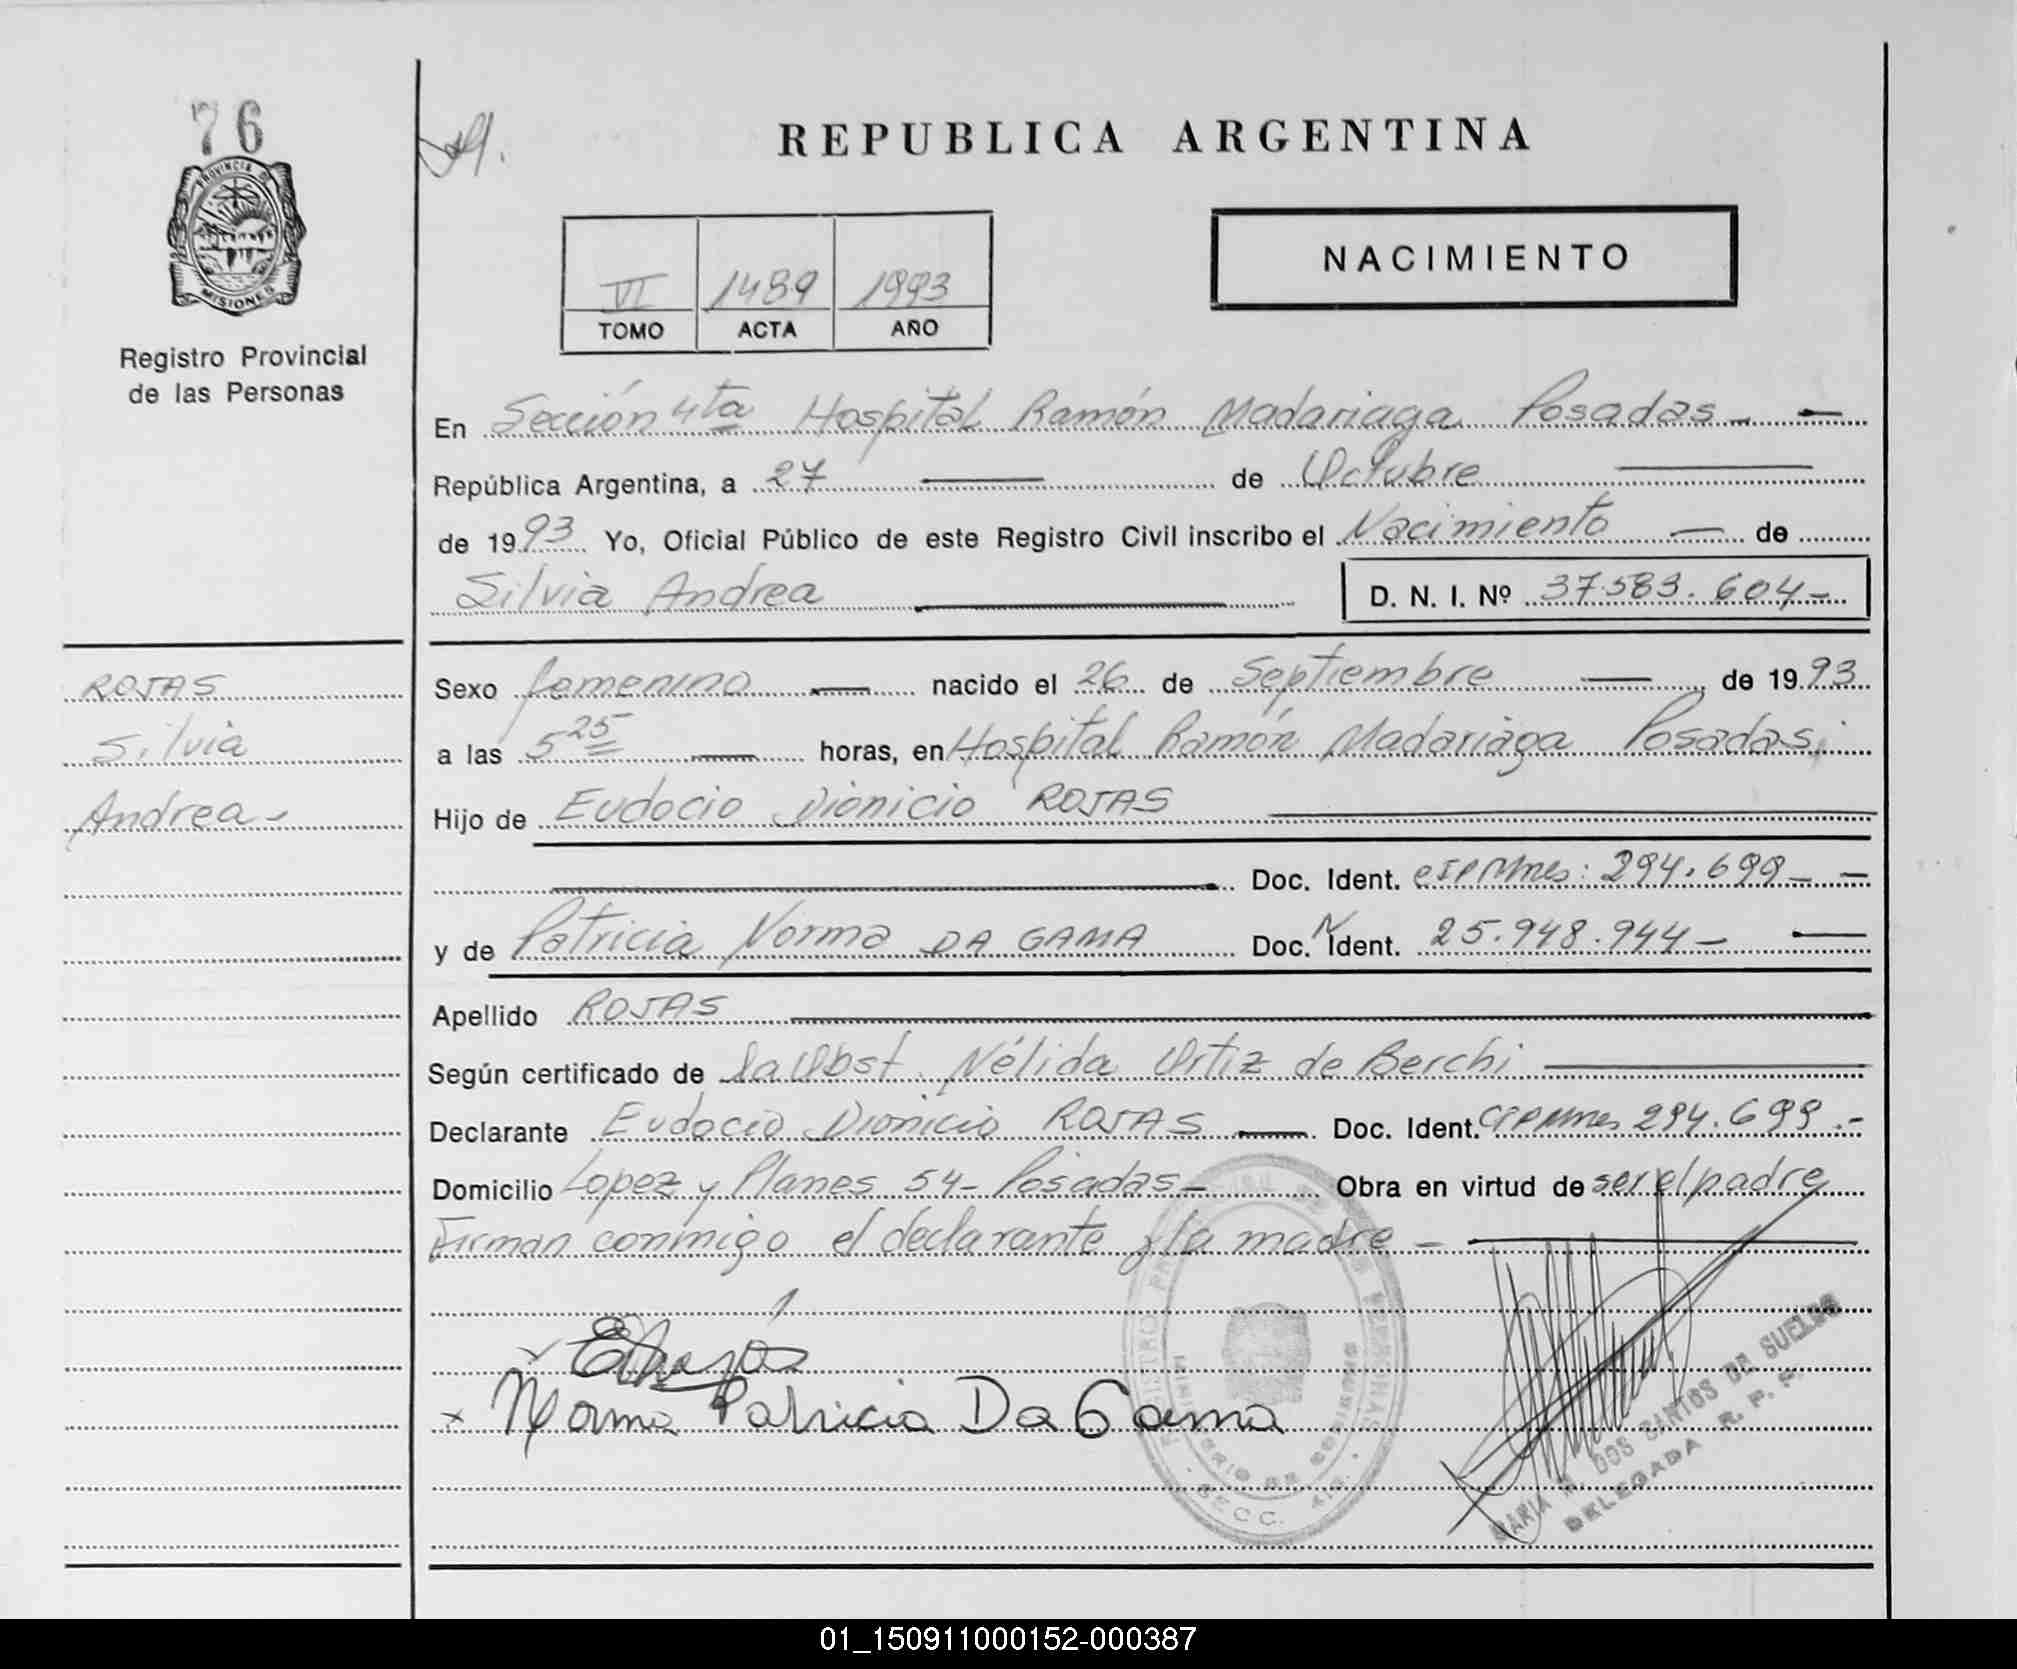 76
PROVINCIA DE
MISIONES
Registro Provincial
de las Personas
REPUBLICA ARGENTINA
NACIMIENTO
VI 1489 1993
TOMO ACTA AÑO
En Sección 4ta Hospital Ramón Madariaga Posadas -
República Argentina, a 27 de Octubre
de 1993 Yo, Oficial Público de este Registro Civil inscribo el Nacimiento de
Silvia Andrea D. N. I. Nº 37.583.604-
ROJAS
Silvia
Andrea-
Sexo femenino nacido el 26 de Septiembre de 1993
a las 5 25 horas, en Hospital Ramón Madariaga Posadas;
Hijo de Eudocio Dionicio ROJAS
Doc. Ident. CIPMnes: 294.699-
y de Patricia Norma DA GAMA Doc. N Ident. 25.948.944-
Apellido ROJAS
Según certificado de la Obst. Nélida Ortiz de Berchi
Declarante Eudocio Dionicio ROJAS Doc. Ident. CIPMnes 294.699.-
Domicilio Lopez y Planes 54- Posadas- Obra en virtud de ser el padre
Firman conmigo el declarante y la madre -
Norma Patricia Da Gama
MARIA M. DOS SANTOS DE SUELDO
DELEGADA R. P. P.
01_150911000152-000387